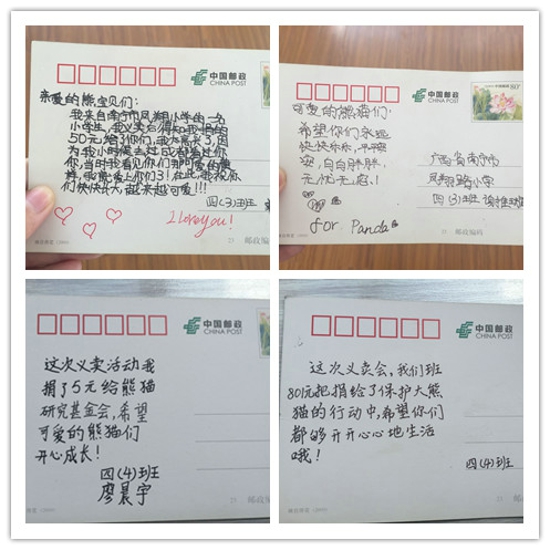 中国邮政
CHINA POST
亲爱的熊宝贝们：
我来自南宁市凤翔小学的一名
小学生，我义卖后得知我捐的
50元给了你们，我太高兴了，因
为我小时候去过成都看过
你，当时我看见你们那可爱的模
样，我爱上你们了！在此，我祝你
们快快长大，越来越可爱！！！
四(3)班
I Love you!
邮政编
中国邮政
CHINA POST
80分
可爱的熊猫们：
希望你们永远
快快乐乐，平平安
安，白白胖胖，
无忧无虑！
for Panda
广西省南宁市
凤翔路小学
四(3)班
邮政编码
中国邮政
CHINA POST
这次义卖活动我
捐了5元给熊猫
研究基金会，希望
可爱的熊猫们
开心成长！
四(4)班
廖晨宇
邮政编
中国邮政
CHINA POST
这次义卖会，我们班
801元把捐给了保护大熊
猫的行动中，希望你们
都够开开心心地生活
哦！
四(4)班
邮政编